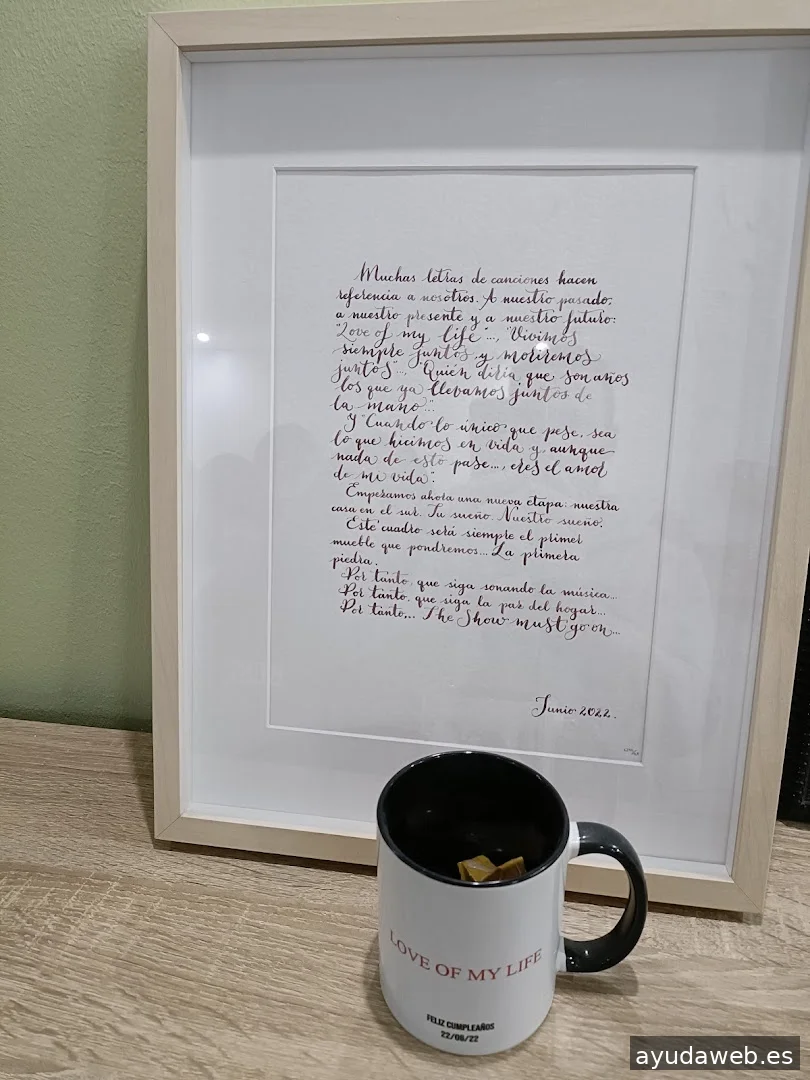 Muchas letras de canciones hacen
referencia a nosotros. A nuestro pasado,
a nuestro presente y a nuestro futuro:
"Love of my life"..., "Vivimos
siempre juntos y moriremos
juntos"..., "Quién diría, que son años
los que ya llevamos juntos de
la mano"...
Y "Cuando lo único que pese, sea
lo que hicimos en vida y, aunque
nada de esto pase..., eres el amor
de mi vida".
Empezamos ahora una nueva etapa: nuestra
casa en el sur. Tu sueño. Nuestro sueño.
Este cuadro será siempre el primer
mueble que pondremos... La primera
piedra.
Por tanto, que siga sonando la música...
Por tanto, que siga la paz del hogar...
Por tanto,... The Show must go on...
Junio 2022.
LOVE OF MY LIFE
FELIZ CUMPLEAÑOS
22/06/22
ayudaweb.es